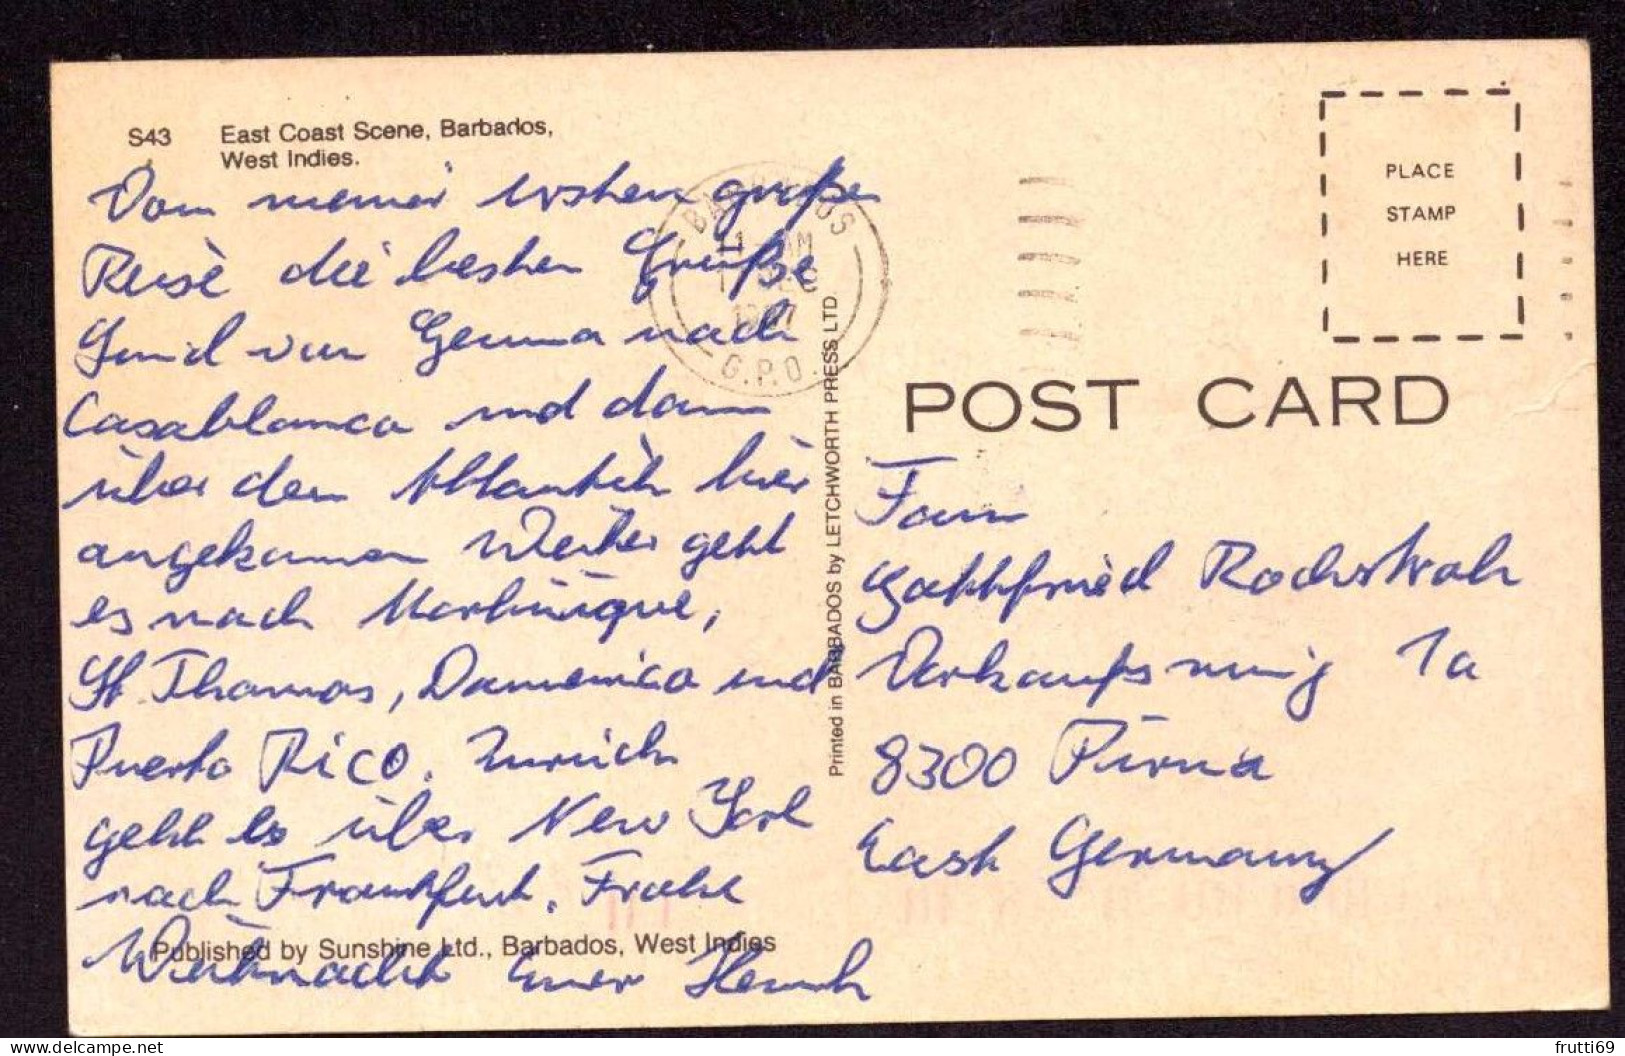 S43 East Coast Scene, Barbados,
West Indies.
Vom meiner ersten großen
Reise die besten Grüße
Sind von Genua nach
Casablanca und dann
über den Atlantik hier
angekommen Weiter geht
es nach Martinique,
St Thomas, Domenica und
Puerto Rico. Zurück
geht es über New York
nach Frankfurt. Frohe
Weihnacht Euer
Published by Sunshine Ltd., Barbados, West Indies
Printed in BARBADOS by LETCHWORTH PRESS LTD.
BARBADOS
11 AM
DEC
G.P.O.
PLACE
STAMP
HERE
POST CARD
Fam
Gottfried
1a
8300 Pirna
East Germany
frutti69